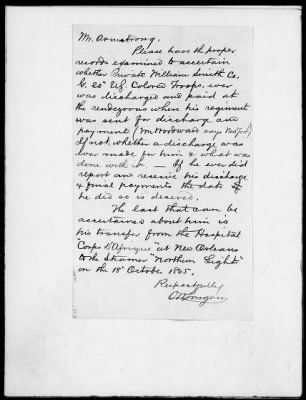 Mr. Armstrong.
Please have the proper
records examined to ascertain
whether Private William Smith Co,
G. 20" U.S. Colored Troops, ever
was discharged and paid at
the rendezvous where his regiment
was sent for discharge and
payment (Mr Woodward says New York)
If not, whether a discharge was
ever made for him & what was
done with it — If he ever did
report and receive his discharge
& final payments the date
he did so is desired.
The last that can be
ascertained about him is
his transfer from the Hospital
"Corps D'Afrique" at New Orleans
to the steamer "Northern Light"
on the 18" October 1865.
Respectfully